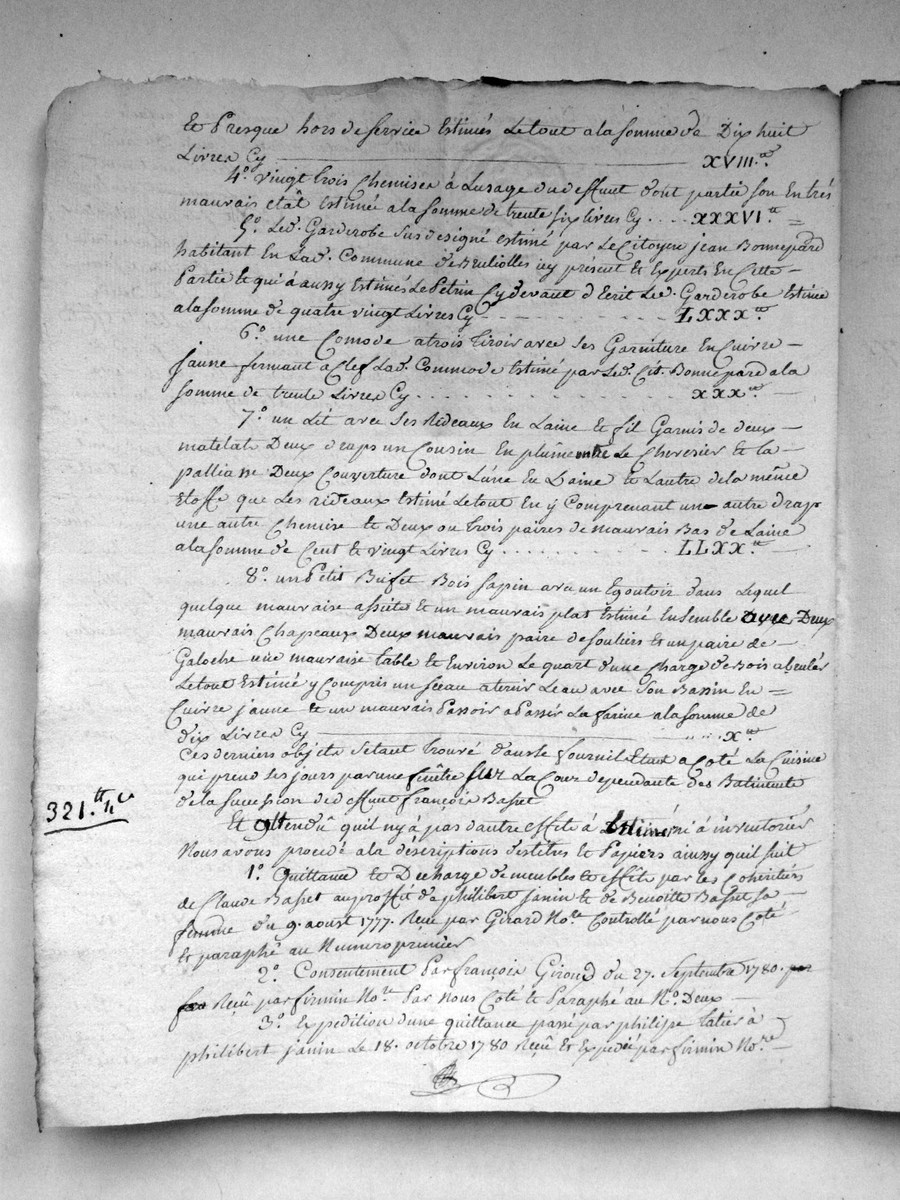 Et Presque hors de service Estimés Le tout a la somme de Dix huit
Livres Cy XVIII.tt
4.o Vingt trois Chemises à Lusage du deffunt dont partie son En très
mauvais etât Estimé a la somme de trente six Livres Cy .... XXXVI.tt =
5.o Led. Garderobe sus designé estimé par Le Citoyen jean Bonnepard
habitant En Lad. Commune de icy présent et Experts En Cette
Partie Et qui à aussy Estimés Le Petrin Cy devant d'Ecrit Led. Garderobe Estimé
a la somme de quatre vingt Livres Cy LXXX.tt
6.o une Comode a trois tiroir avec ses Garniture En Cuivre
jaune fermant a Clef Lad. Commode Estimé par Led. Cit. Bonnepard a la
somme de trente Livres Cy XXX.tt
7.o un Lit avec ses Rideaux En Laine et fil Garnis de deux
matelat Deux draps un Cousin En plume entre Le Chevesier et la
palliasse Deux Couverture dont L'une En Laine et Lautre de la même
Etoffe que Les rideaux Estimé Le tout En y Comprenant un autre drap
une autre Chemise et Deux ou trois paires de mauvais Bas de Laine
a la somme de Cent et vingt Livres Cy LLXX.tt
8.o un Petit Bufet Bois sapin avec un Egoutoir dans Lequel
quelque mauvaise assiete et un mauvais plat Estimé Ensemble avec Deux
mauvais Chapeaux Deux mauvais paire de souliers et un paire de
Galoche une mauvaise table et Environ Le quart d'une Charge de Bois a bruler
Le tout Estimé y Compris un seeau a tenir Leau avec son Bassin En =
Cuivre jaune et un mauvais Passoir a Passer La farine a la somme de
dix Livres Cy X.tt
Ces derniers objets setant trouvé dans le fournil Etant a Coté La Cuisine
qui prend ses jours par une fenêtre sur La Cour dependante des Batiments
321.tt de la succession de deffunt françois Basset
Et Attendû quil ny à pas dautre effets à Estimé ni à inventorier
Nous avons procedé a la déscriptions des titres et Papiers ainssy quil suit
1.o Quittance et Decharge de meubles et effêts par les Cohéritiers
de Claude Basset au proffit de philibert janin et de Benoitte Basset sa
femme du 9. aoust 1777. Reçu par Girard No.re Controllé par nous Coté
et paraphé au Numero premier
2.o Consentement Par françois Giroud du 27. Septembre 1780. par
Reçû par firmin No.re Par Nous Coté et Paraphé au N.o Deux
3.o Expedition d'une quittance passé par philippe tatier à
philibert janin Le 18. octobre 1780 Reçû Et Expedié par firmin No.re